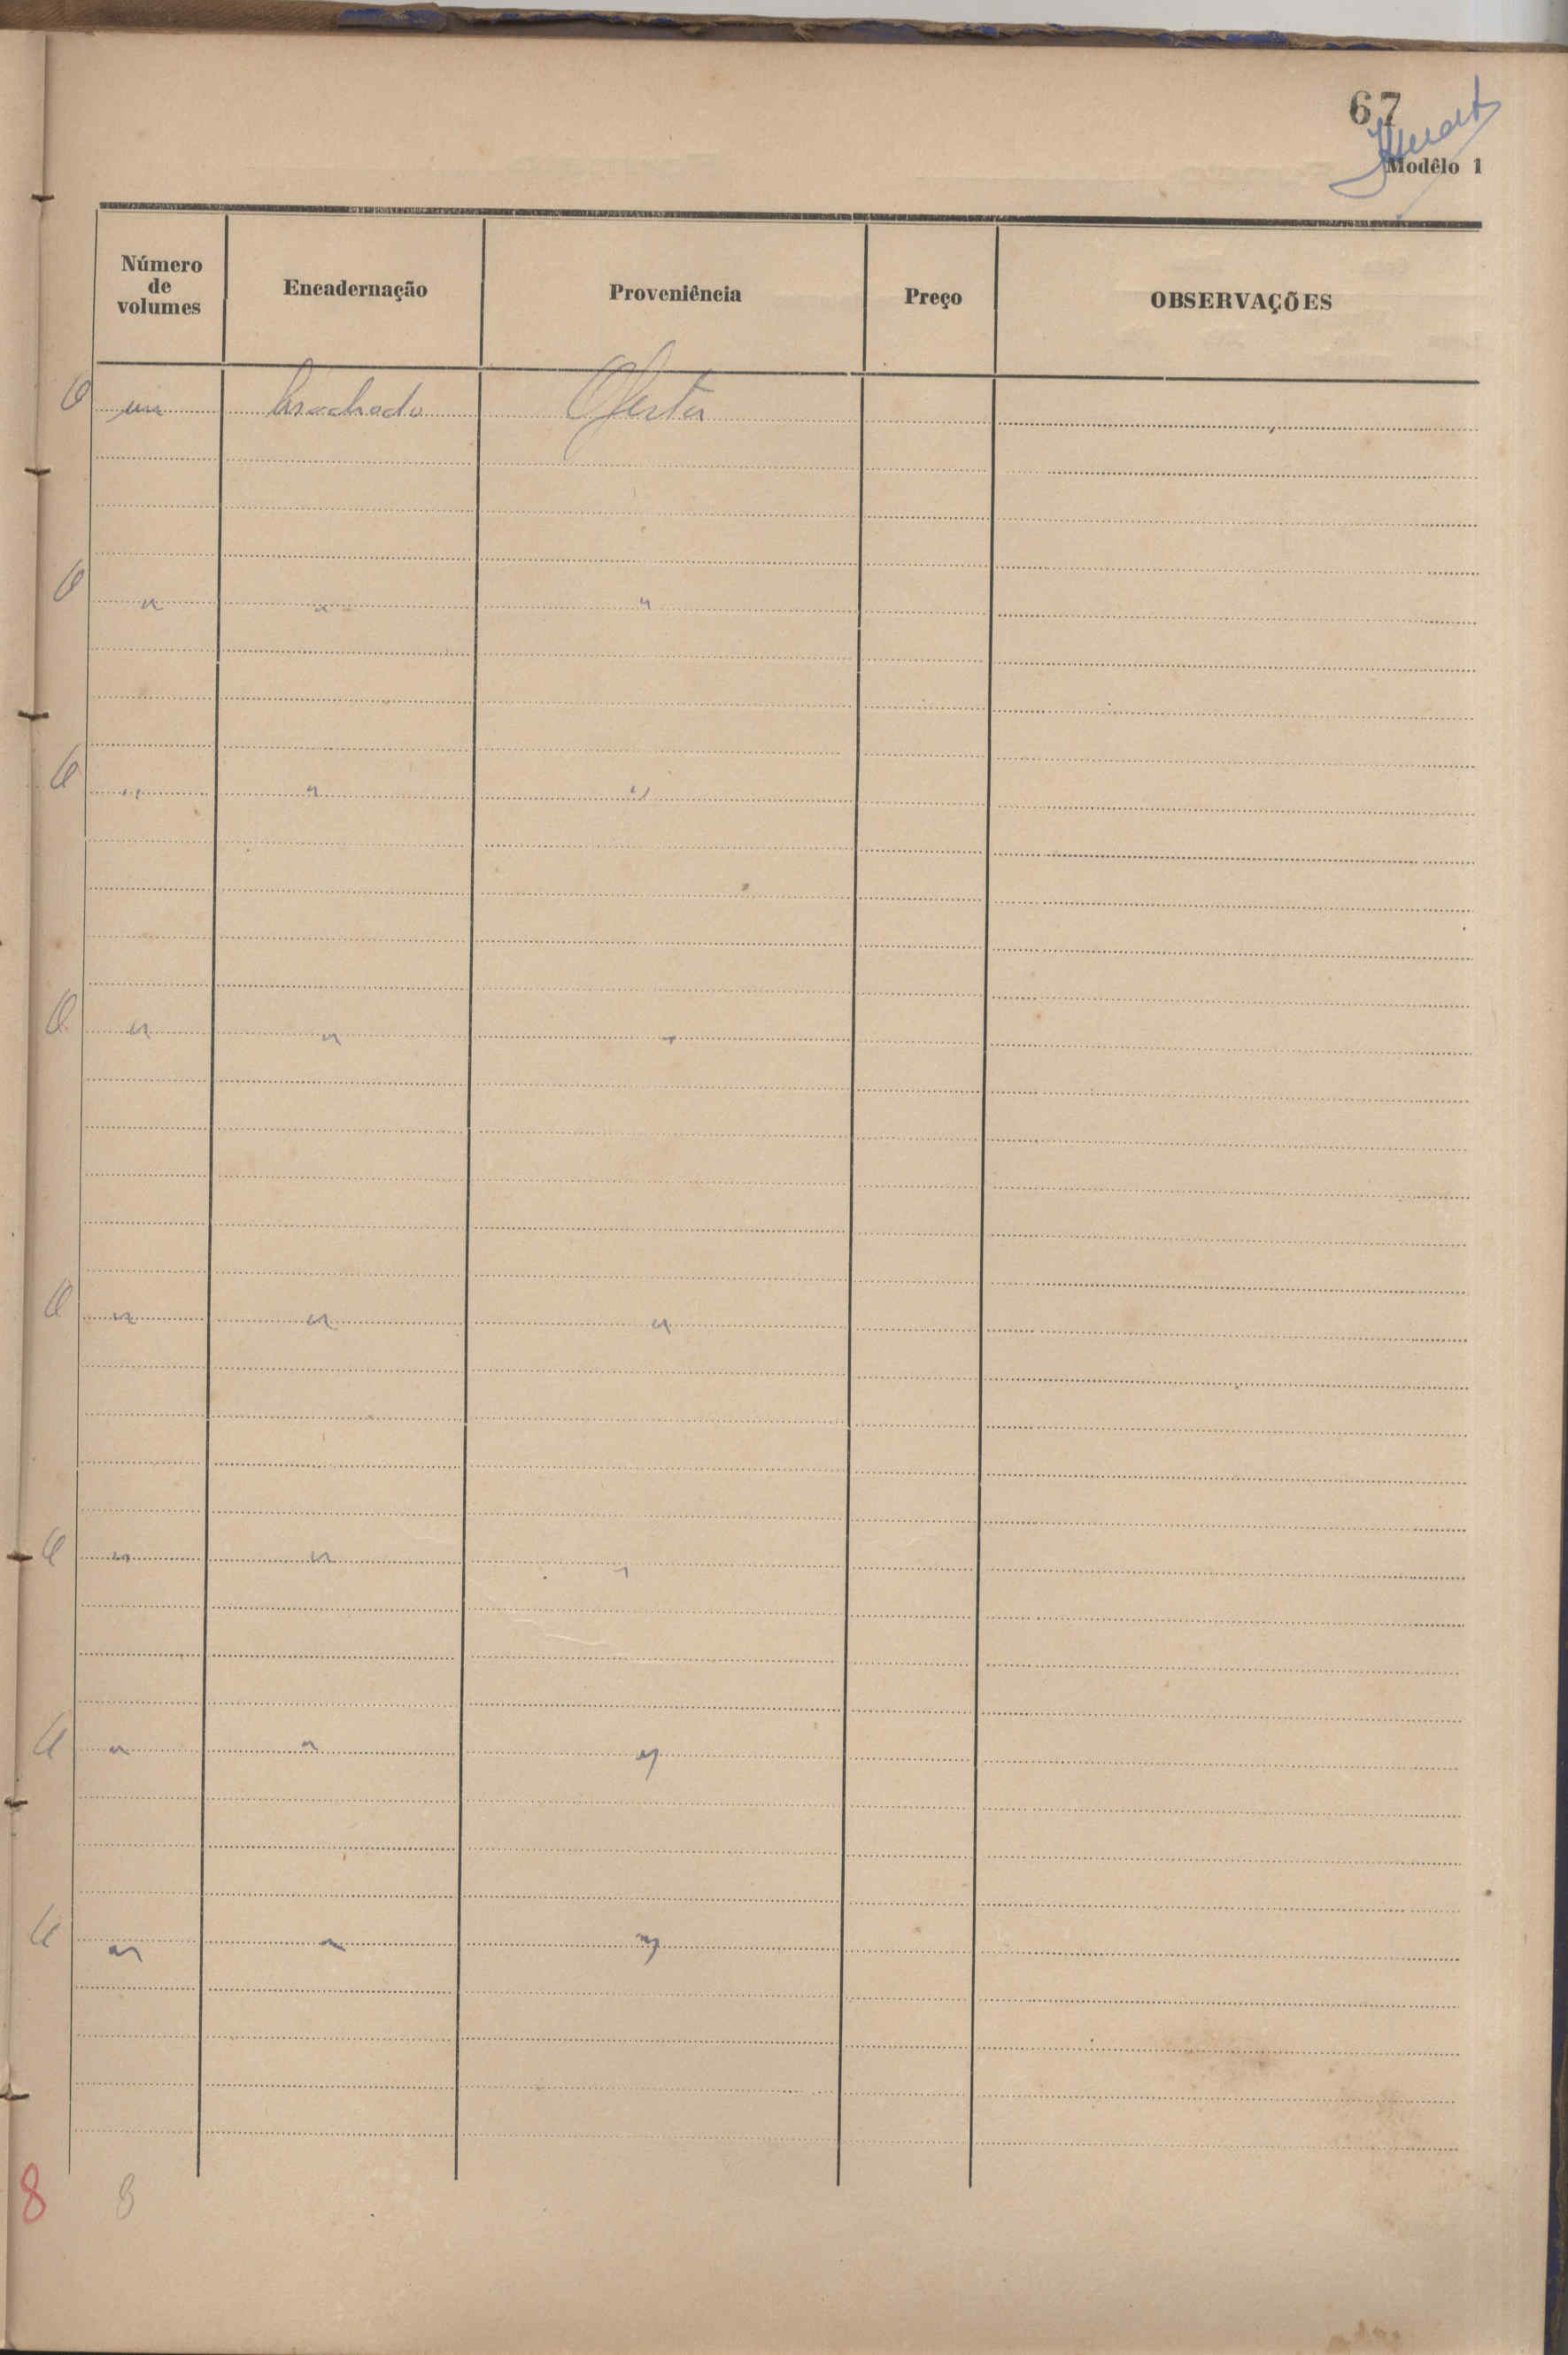 67
Modêlo 1
Número de volumes Encadernação Proveniência Preço OBSERVAÇÕES
um brochado Oferta
" " "
" " "
" " "
" " "
" " "
" " "
" " "
8 8